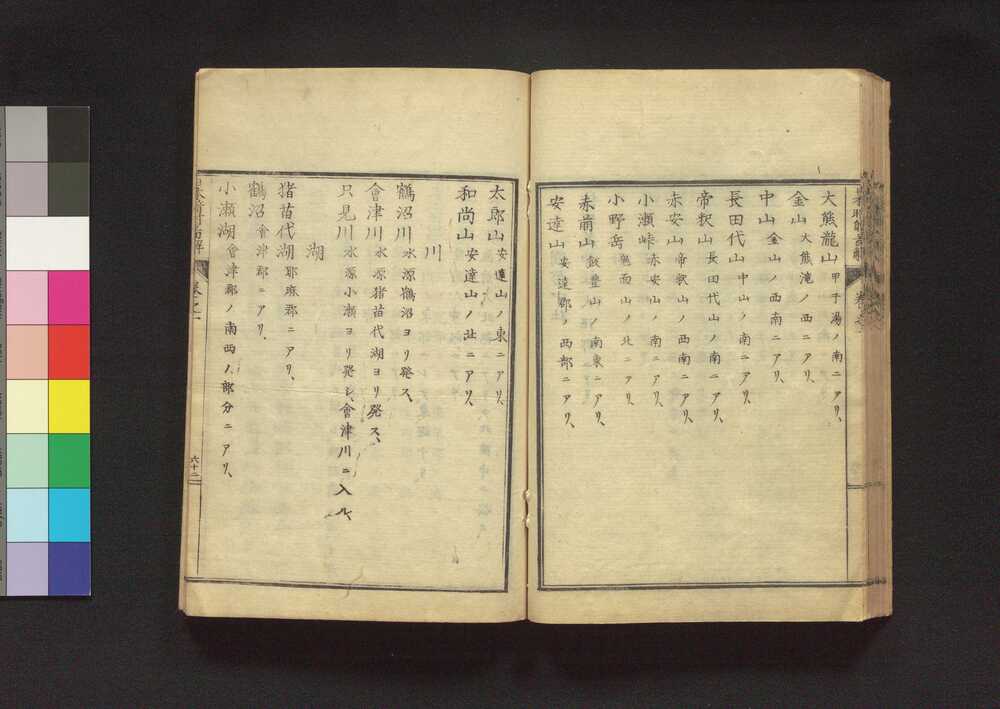 大熊瀧山 甲子湯ノ南ニアリ、
金山 大熊滝ノ西ニアリ、
中山 金山ノ西南ニアリ、
長田代山 中山ノ南ニアリ、
帝釈山 長田代山ノ南ニアリ、
赤安山 帝釈山ノ西南ニアリ、
小瀬峠 赤安山ノ南ニアリ、
小野岳 鬼面山ノ北ニアリ、
赤崩山 飯豊山ノ南東ニアリ、
安達山 安達郡ノ西部ニアリ、
太郎山 安達山ノ東ニアリ、
和尚山 安達山ノ北ニアリ、
川
鶴沼川 水源鶴沼ヨリ発ス、
會津川 水源猪苗代湖ヨリ発ス、
只見川 水源小瀬ヨリ発シ、會津川ニ入ル、
湖
猪苗代湖 耶麻郡ニアリ、
鶴沼 會津郡ニアリ、
小瀬湖 會津郡ノ南西ノ部分ニアリ、
六十二